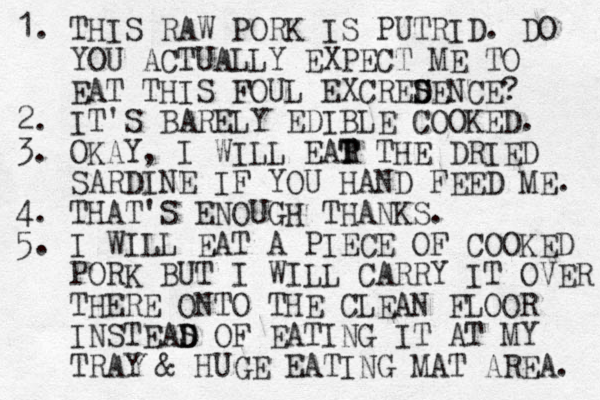 1. THIS RAW PORK IS PUTRID. DO
YOU ACTUALLY EXPECT ME TO
EAT THIS FOUL EXCRESENCE?
2. IT'S BARELY EDIBLE COOKED.
3. OKAY, I WILL EAT THE DRIED
SARDINE IF YOU HAND FEED ME.
4. THAT'S ENOUGH THANKS.
5. I WILL EAT A PIECE OF COOKED
PORK BUT I WILL CARRY IT OVER
THERE ONTO THE CLEAN FLOOR
INSTEAD OF EATING IT AT MY
TRAY & HUGE EATING MAT AREA.